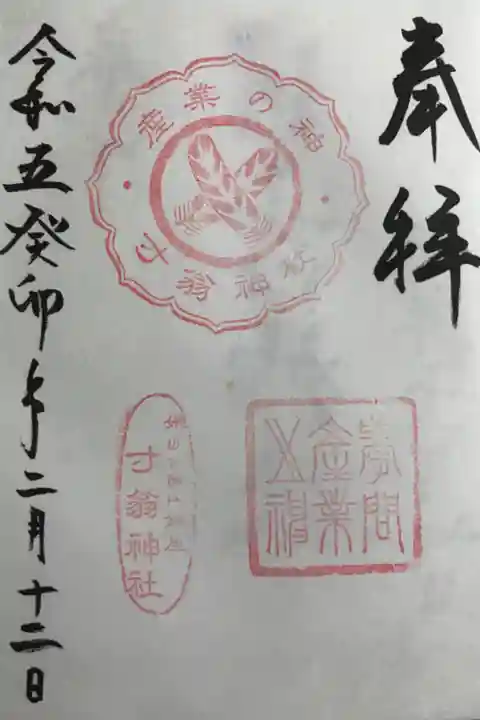 奉拝
産業の神
寸翁神社
学問
産業
之神
寸翁神社
令和五癸卯年二月十二日